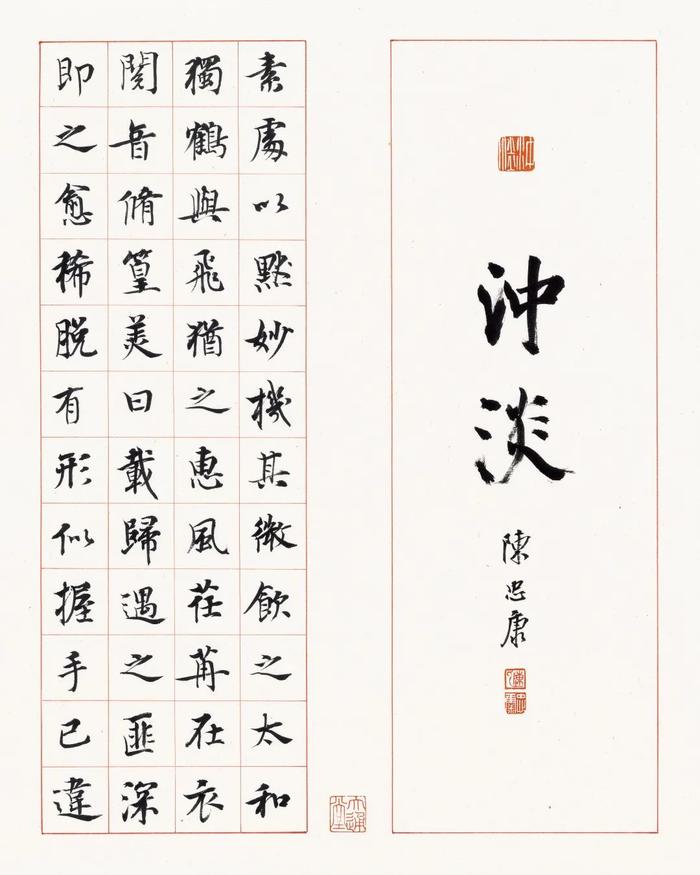 沖淡
陳忠康
素處以黙妙機其微飲之太和
獨鶴與飛猶之惠風荏苒在衣
閱音脩篁美曰載歸遇之匪深
即之愈稀脱有形似握手已違